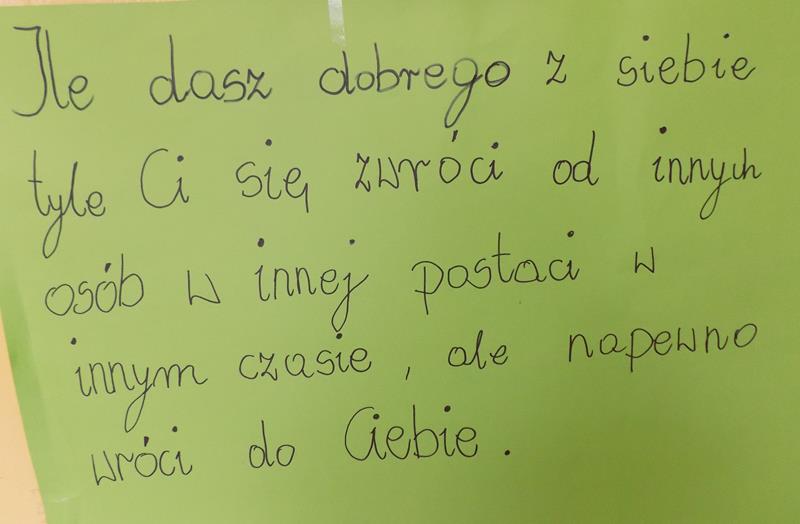 Ile dasz dobrego z siebie
tyle Ci się zwróci od innych
osób w innej postaci w
innym czasie, ale napewno
wróci do Ciebie.